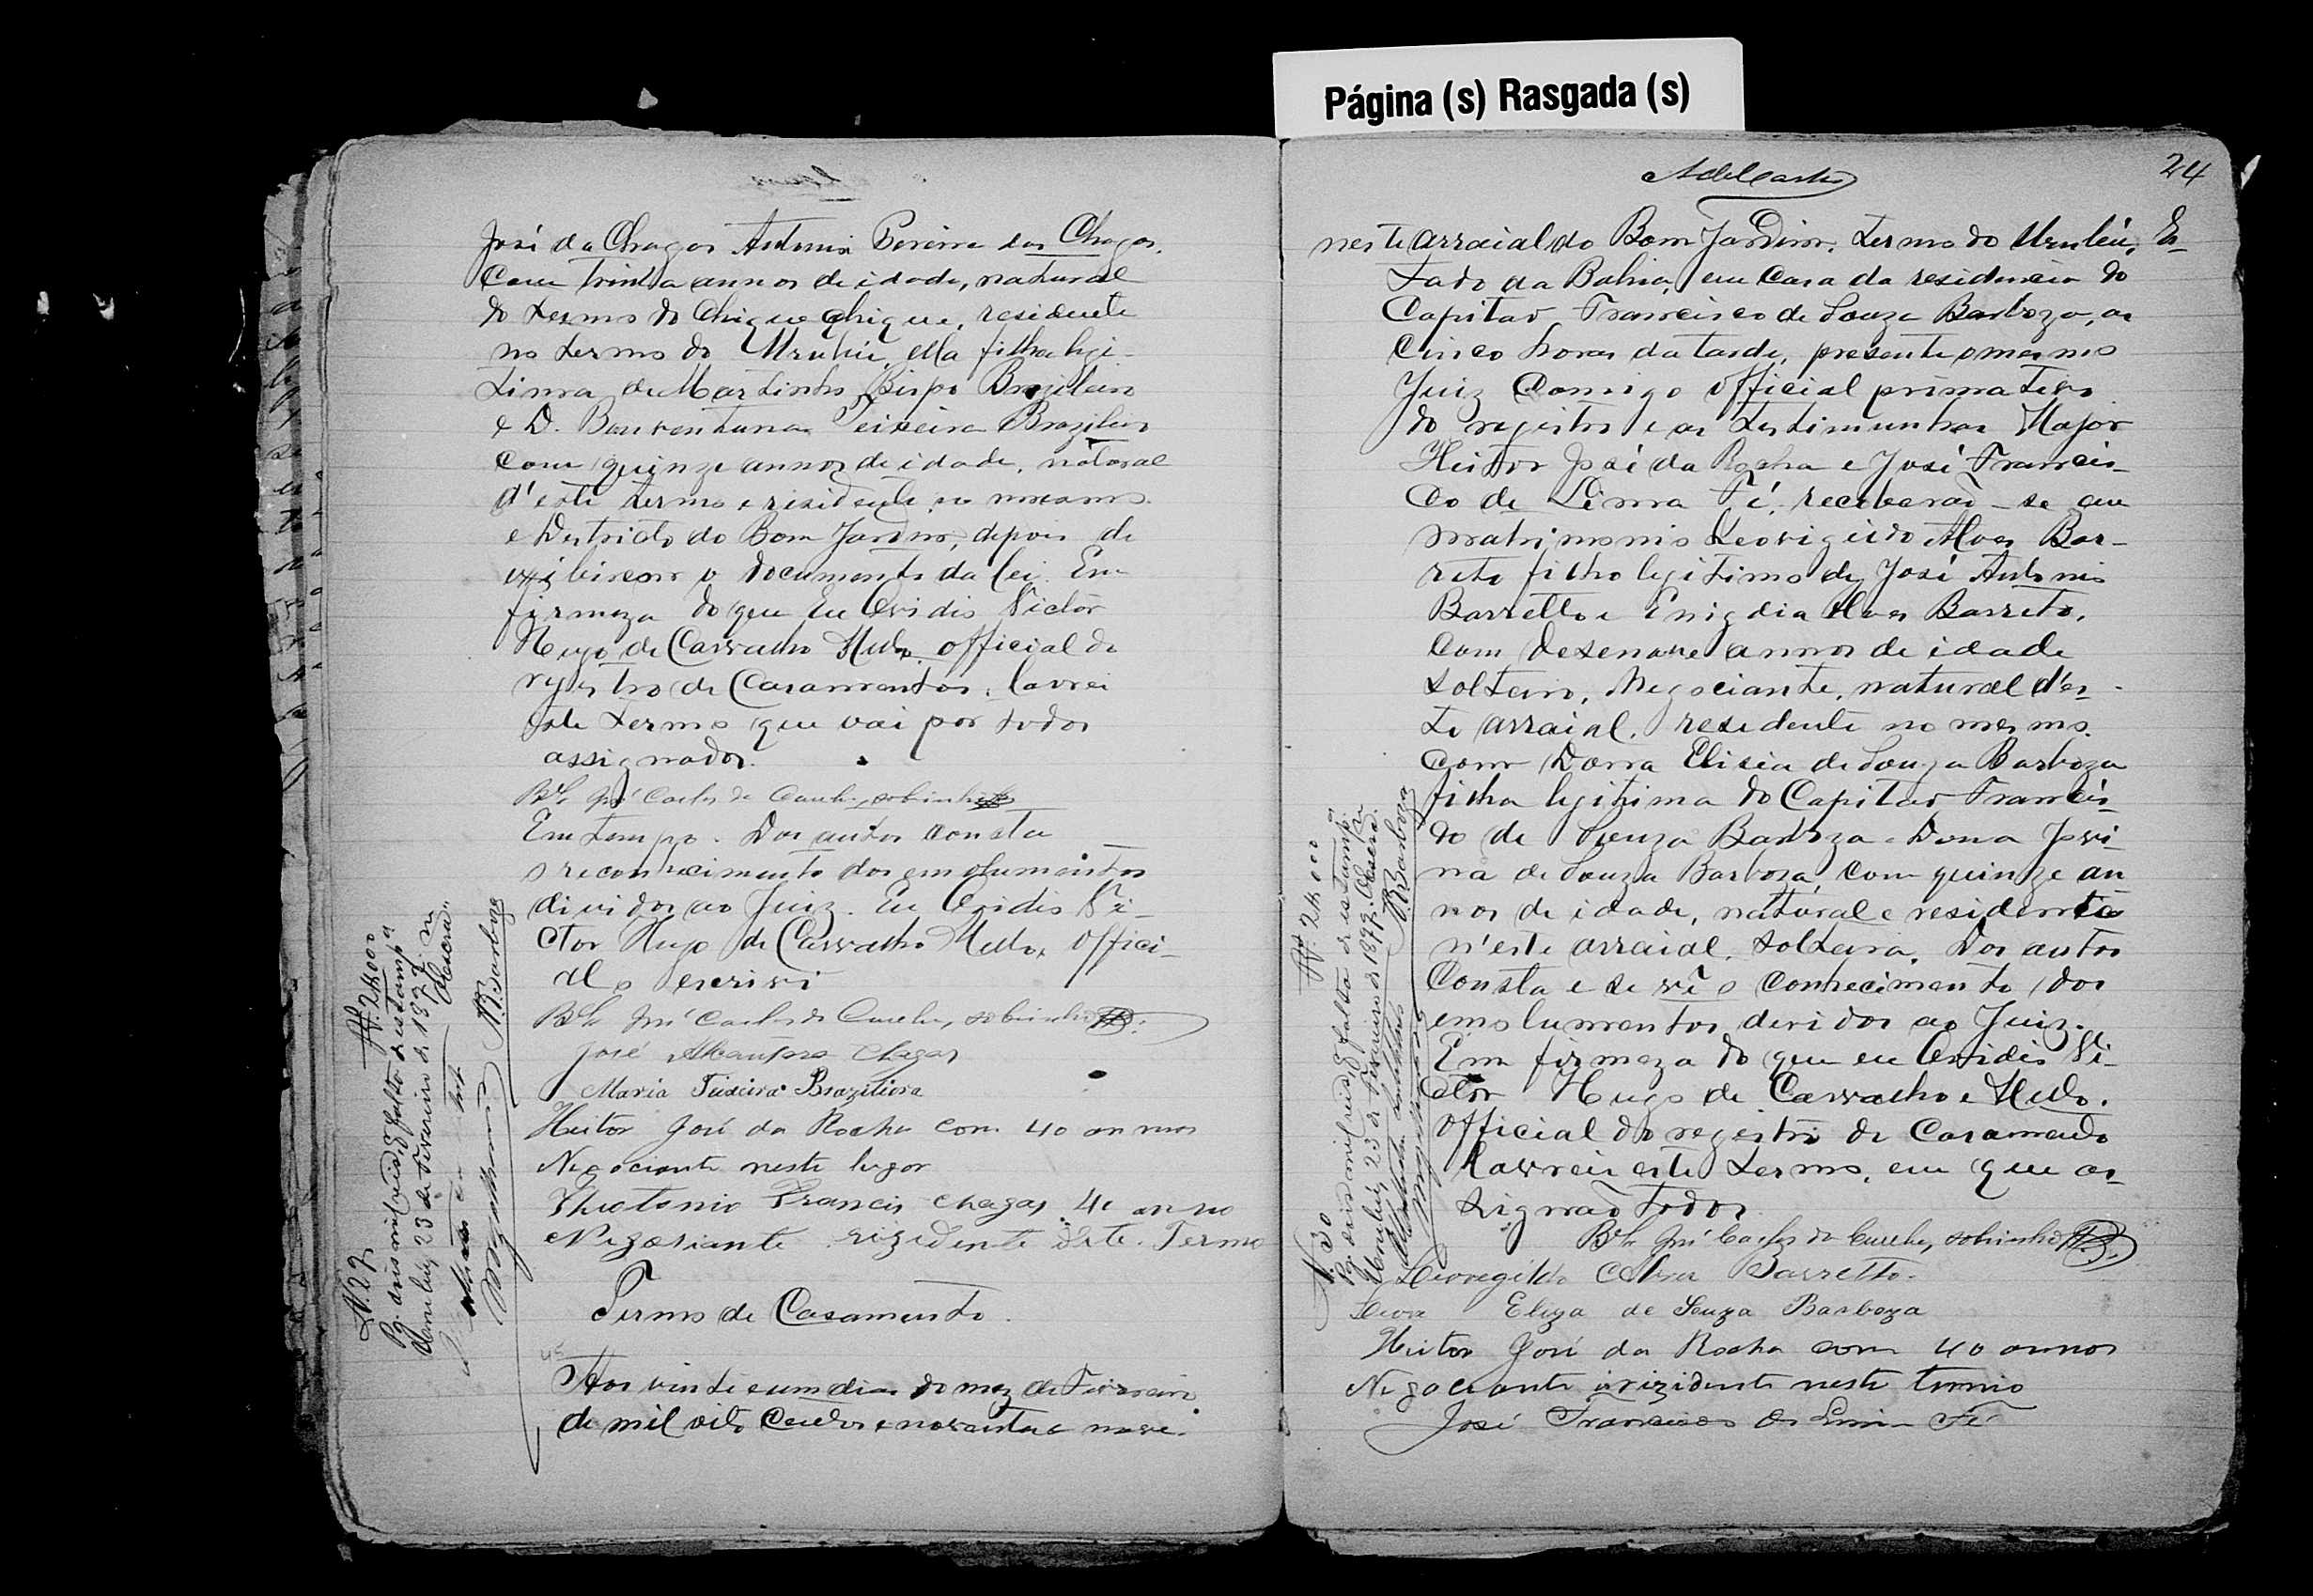 Página (s) Rasgada (s)
José da Chagas Antonia Pereira das Chagas,
Com trinta annos de idade, natural
do Termo do Chique Chique, residente
no termo do Urubú, ella filha legi-
tima de Martinho Bispo Brazileiro
e D. Bonventura Teixeira Brazileiro
com quinze annos de idade, natural
d'este termo e residente no mesmo
e Destricto do Bom Jardim, depois de
exibirem o documento da lei. Em
firmeza do que Eu Ovidio Victor
Hugo de Carvalho Mello, official do
registro de Casamentos, lavrei
este termo que vai por todos
assignados.
Bel. José Carlos da Cunha, sobrinho
Em tempo. Dos autos consta
o reconhecimento dos emolumentos
dividos ao Juiz. Eu Ovidio Vi-
ctor Hugo de Carvalho Mello, Offici-
al o escrivi
Bel. José Carlos da Cunha, sobrinho
José Alcantara Chagas
Maria Teixeira Brazileira
Heitor José da Rocha com 40 annos
Negociante neste lugar
Theotonio Francis Chagas 40 anno
Negosiante rizidente deste Termo
Termo de Casamento.
Aos vinte e um dias do mez de Fevereiro
de mil oito centos e noventa e nove.
N. 29
2$000
Pg. dois mil reis, p. falta de estampª
Urubú, 23 de Fevereiro de 1899.
Magalhães
N. Barboza
24
neste arraial do Bom Jardim, termo do Urubú, Es-
tado da Bahia, em casa da residencia do
Capitão Francisco de Souza Barboza, as
cinco horas da tarde, presente o mesmo
Juiz Comigo official
do registro e as testimunhas Major
Heitor José da Rocha e José Francis-
co de Lima Fé, receberaõ-se em
matrimonio Leovigildo Alves Bar-
reto filho legitimo de José Antonio
Barretto e Enigdia Alves Barreto,
com desenove annos de idade
solteiro, Negociante, natural d'es-
te arraial, residente no mesmo.
com Dona Elisia de Souza Barboza
filha legitima do Capitão Francis-
co de Souza Barboza e Dona Jovi-
na de Souza Barboza com quinze an
nos de idade, natural e residente
n'este arraial, solteira. Dos autos
Consta e se vê o conhecimento dos
emolumentos devidos ao Juiz.
Em firmeza do que eu Ovidio Vi-
ctor Hugo de Carvalho e Mello.
official do registro de Casamento
lavrei este termo, em que as-
signaõ todos.
Bel. José Carlos da Cunha, sobrinho
Leovegildo Alves Barretto.
Eliza de Souza Barboza
Heitor José da Rocha com 40 annos
Negociante i rizidente neste termo
José Francisco de Lima Fé
N. 30
2$000
Pg. dois mil reis, p. falta de estampª
Urubú, 23 de Fevereiro de 1899.
Magalhães
N. Barboza